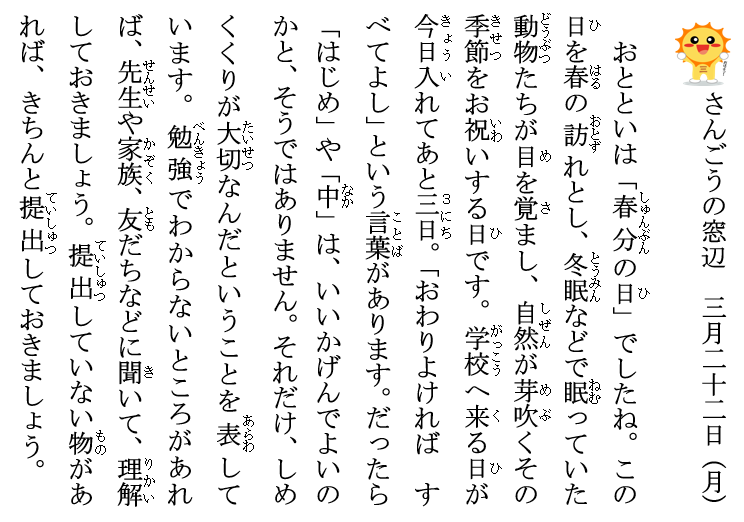 さんごうの窓辺　三月二十二日（月）
おとといは「春分の日」でしたね。この
日を春の訪れとし、冬眠などで眠っていた
動物たちが目を覚まし、自然が芽吹くその
季節をお祝いする日です。学校へ来る日が
今日入れてあと三日。「おわりよければ　す
べてよし」という言葉があります。だったら
「はじめ」や「中」は、いいかげんでよいの
かと、そうではありません。それだけ、しめ
くくりが大切なんだということを表して
います。勉強でわからないところがあれ
ば、先生や家族、友だちなどに聞いて、理解
しておきましょう。提出していない物があ
れば、きちんと提出しておきましょう。